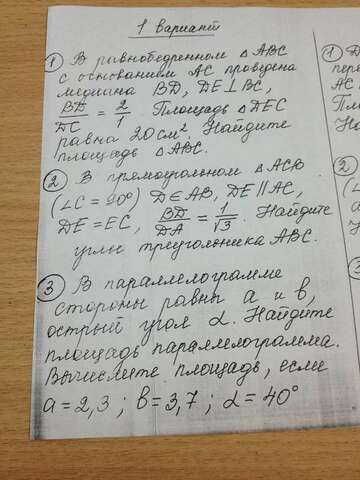 1 вариант
① В равнобедренном △ АВС
с основанием АС проведена
медиана BD, DE⊥BC,
BD/DC = 2/1. Площадь △DEC
равна 20 см². Найдите
площадь △ АВС.
② В прямоугольном △ АСВ
(∠C = 90°) D∈AB, DE∥AC,
DE = EC, BD/DA = 1/√3. Найдите
углы треугольника АВС.
③ В параллелограмме
стороны равны a и b,
острый угол α. Найдите
площадь параллелограмма.
Вычислите площадь, если
a = 2,3 ; b = 3,7 ; α = 40°
① D
пере
АС
Пл
На
②
(∠